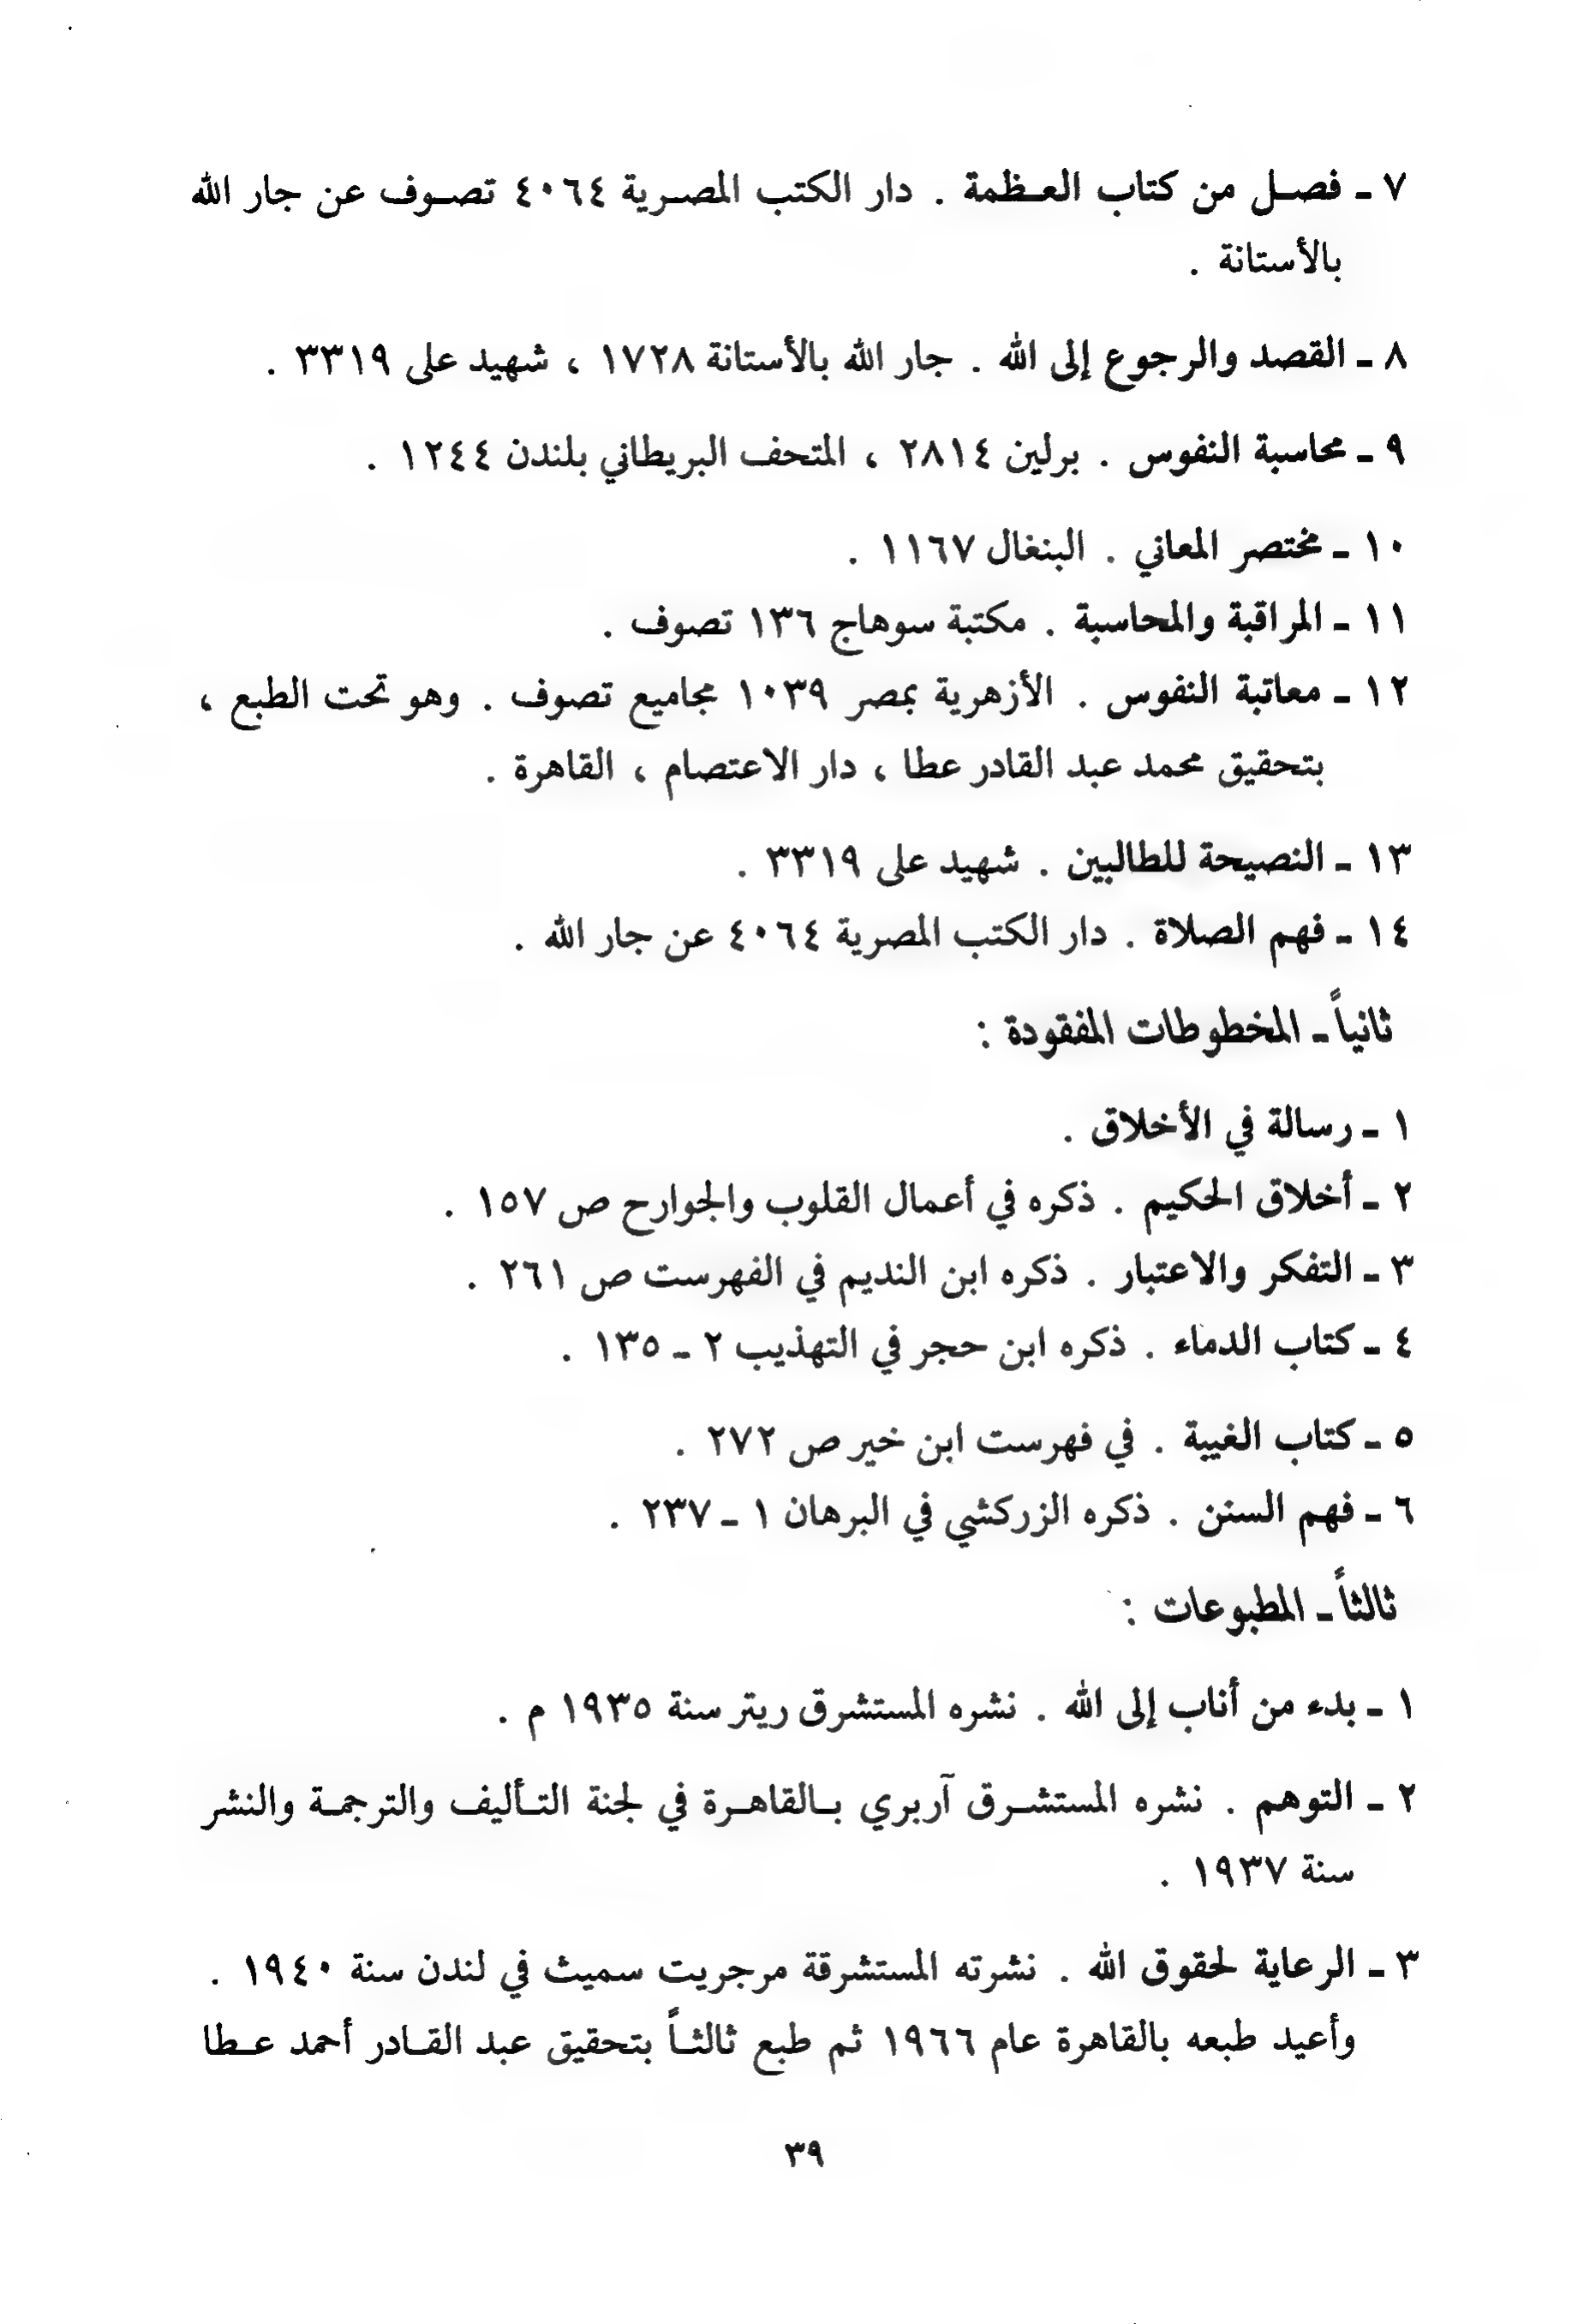 ٧ ـ فصل من كتاب العظمة . دار الكتب المصرية ٤٠٦٤ تصوف عن جار الله
بالأستانة .
٨ ـ القصد والرجوع إلى الله . جار الله بالأستانة ١٧٢٨ ، شهيد على ٣٣١٩ .
٩ ـ محاسبة النفوس . برلين ٢٨١٤ ، المتحف البريطاني بلندن ١٢٤٤ .
١٠ ـ مختصر المعاني . البنغال ١١٦٧ .
١١ ـ المراقبة والمحاسبة . مكتبة سوهاج ١٣٦ تصوف .
١٢ ـ معاتبة النفوس . الأزهرية بمصر ١٠٣٩ مجاميع تصوف . وهو تحت الطبع ،
بتحقيق محمد عبد القادر عطا ، دار الاعتصام ، القاهرة .
١٣ ـ النصيحة للطالبين . شهيد على ٣٣١٩ .
١٤ ـ فهم الصلاة . دار الكتب المصرية ٤٠٦٤ عن جار الله .
ثانياً ـ المخطوطات المفقودة :
١ ـ رسالة في الأخلاق .
٢ ـ أخلاق الحكيم . ذكره في أعمال القلوب والجوارح ص ١٥٧ .
٣ ـ التفكر والاعتبار . ذكره ابن النديم في الفهرست ص ٢٦١ .
٤ ـ كتاب الدماء . ذكره ابن حجر في التهذيب ٢ ـ ١٣٥ .
٥ ـ كتاب الغيبة . في فهرست ابن خير ص ٢٧٢ .
٦ ـ فهم السنن . ذكره الزركشي في البرهان ١ ـ ٢٣٧ .
ثالثاً ـ المطبوعات :
١ ـ بدء من أناب إلى الله . نشره المستشرق ريتر سنة ١٩٣٥ م .
٢ ـ التوهم . نشره المستشرق آربري بالقاهرة في لجنة التأليف والترجمة والنشر
سنة ١٩٣٧ .
٣ ـ الرعاية لحقوق الله . نشرته المستشرقة مرجريت سميث في لندن سنة ١٩٤٠ .
وأعيد طبعه بالقاهرة عام ١٩٦٦ ثم طبع ثالثاً بتحقيق عبد القادر أحمد عطا
٣٩